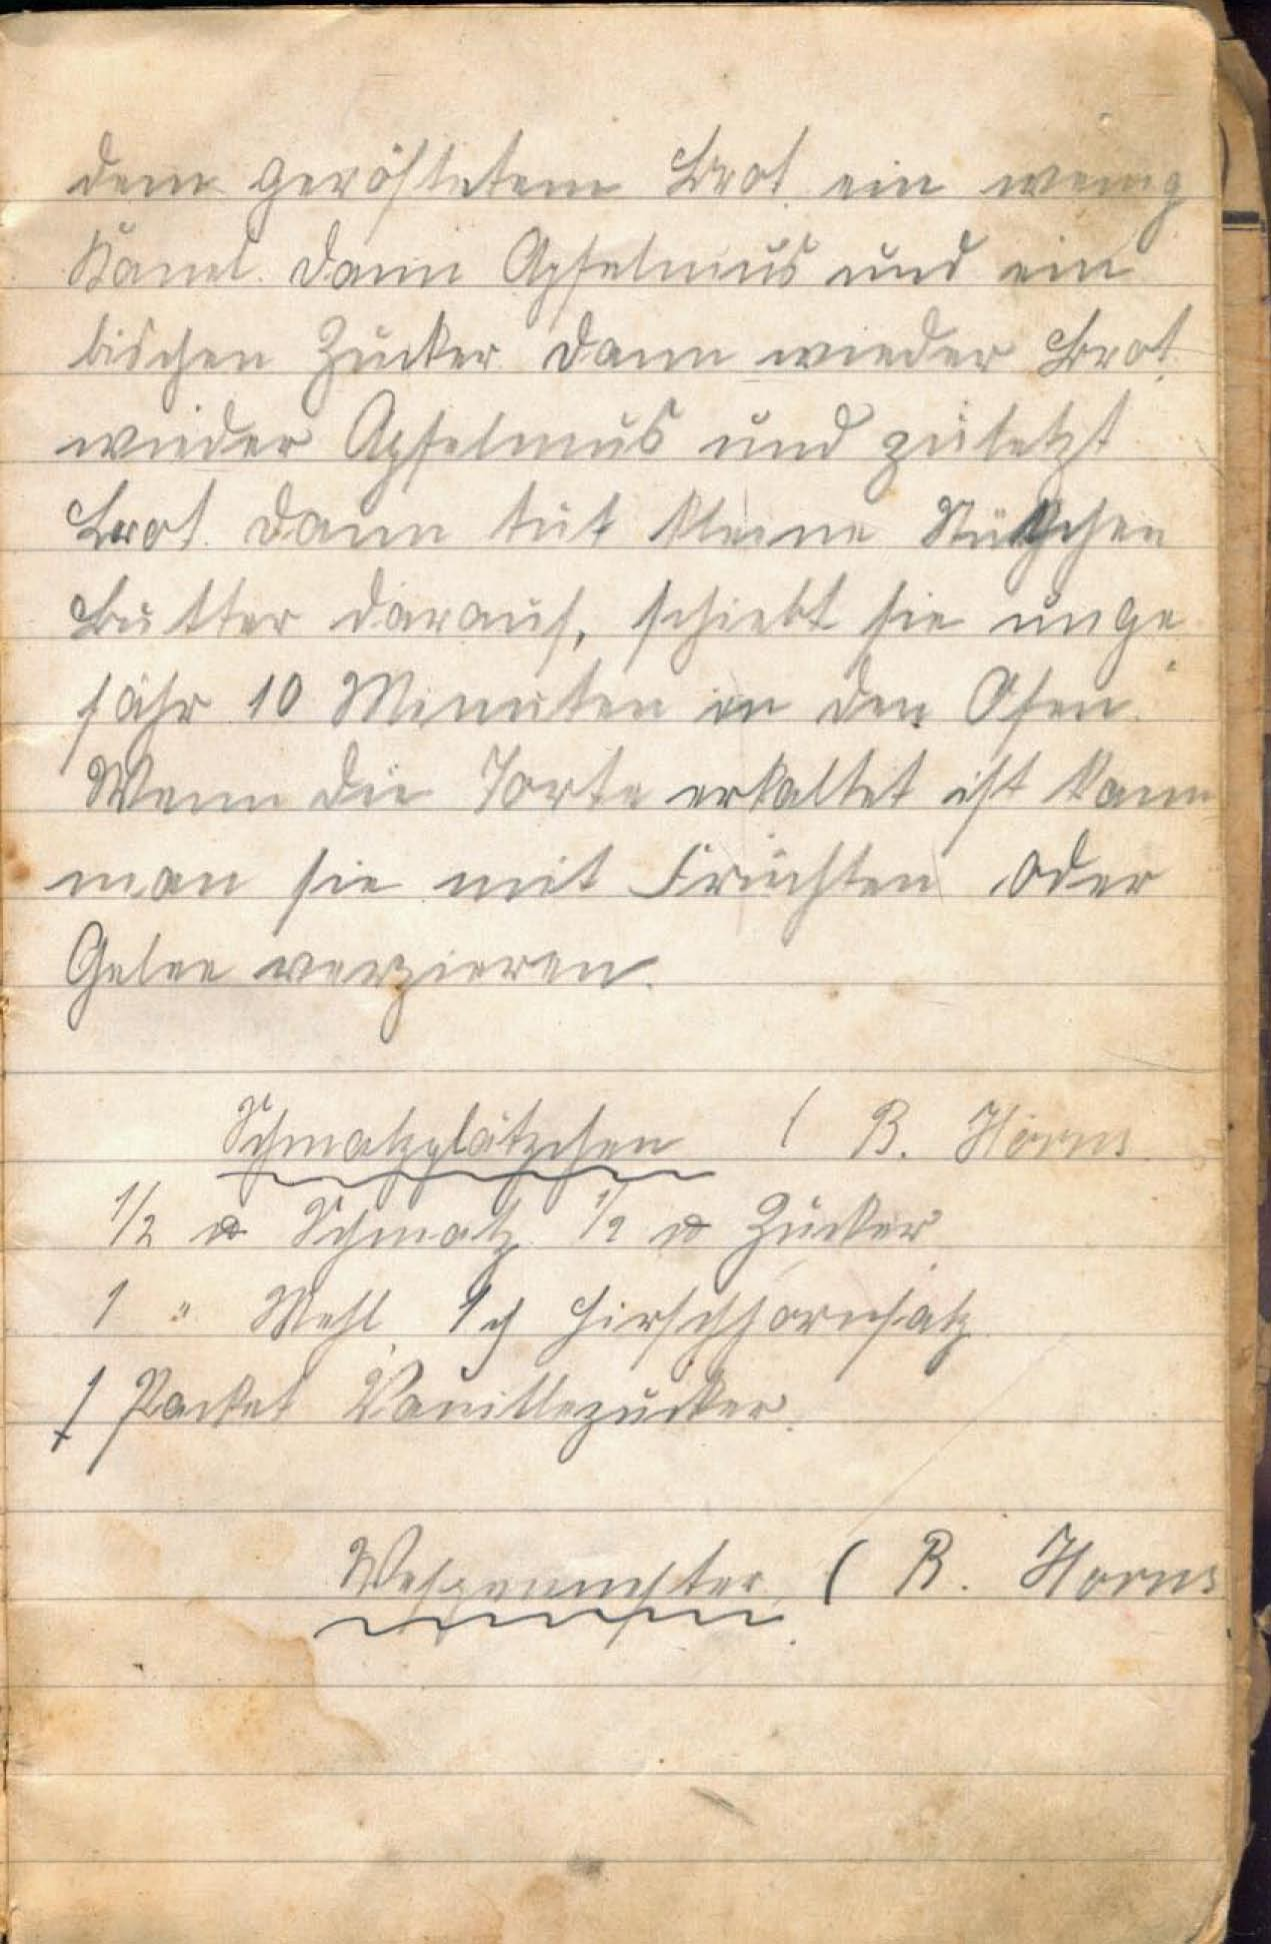 dem geröstetem Brot ein wenig
Kanel. dann Apfelmus und ein
bischen Zucker dann wieder Brot
wieder Apfelmus und zuletzt
Brot. dann tut kleine Stükchen
Butter darauf, schiebt sie unge
fähr 10 Minuten in den Ofen.
Wenn die Torte erkaltet ist kann
man sie mit Früchten oder
Gelee verzieren.
Schmalzplätzchen ( B. Horns.
1/2 ℔ Schmalz 1/2 ℔ Zucker
1 " Mehl. 1 Hirschhornsalz
1 Packet Vanillezucker.
Wespennester ( B. Horns